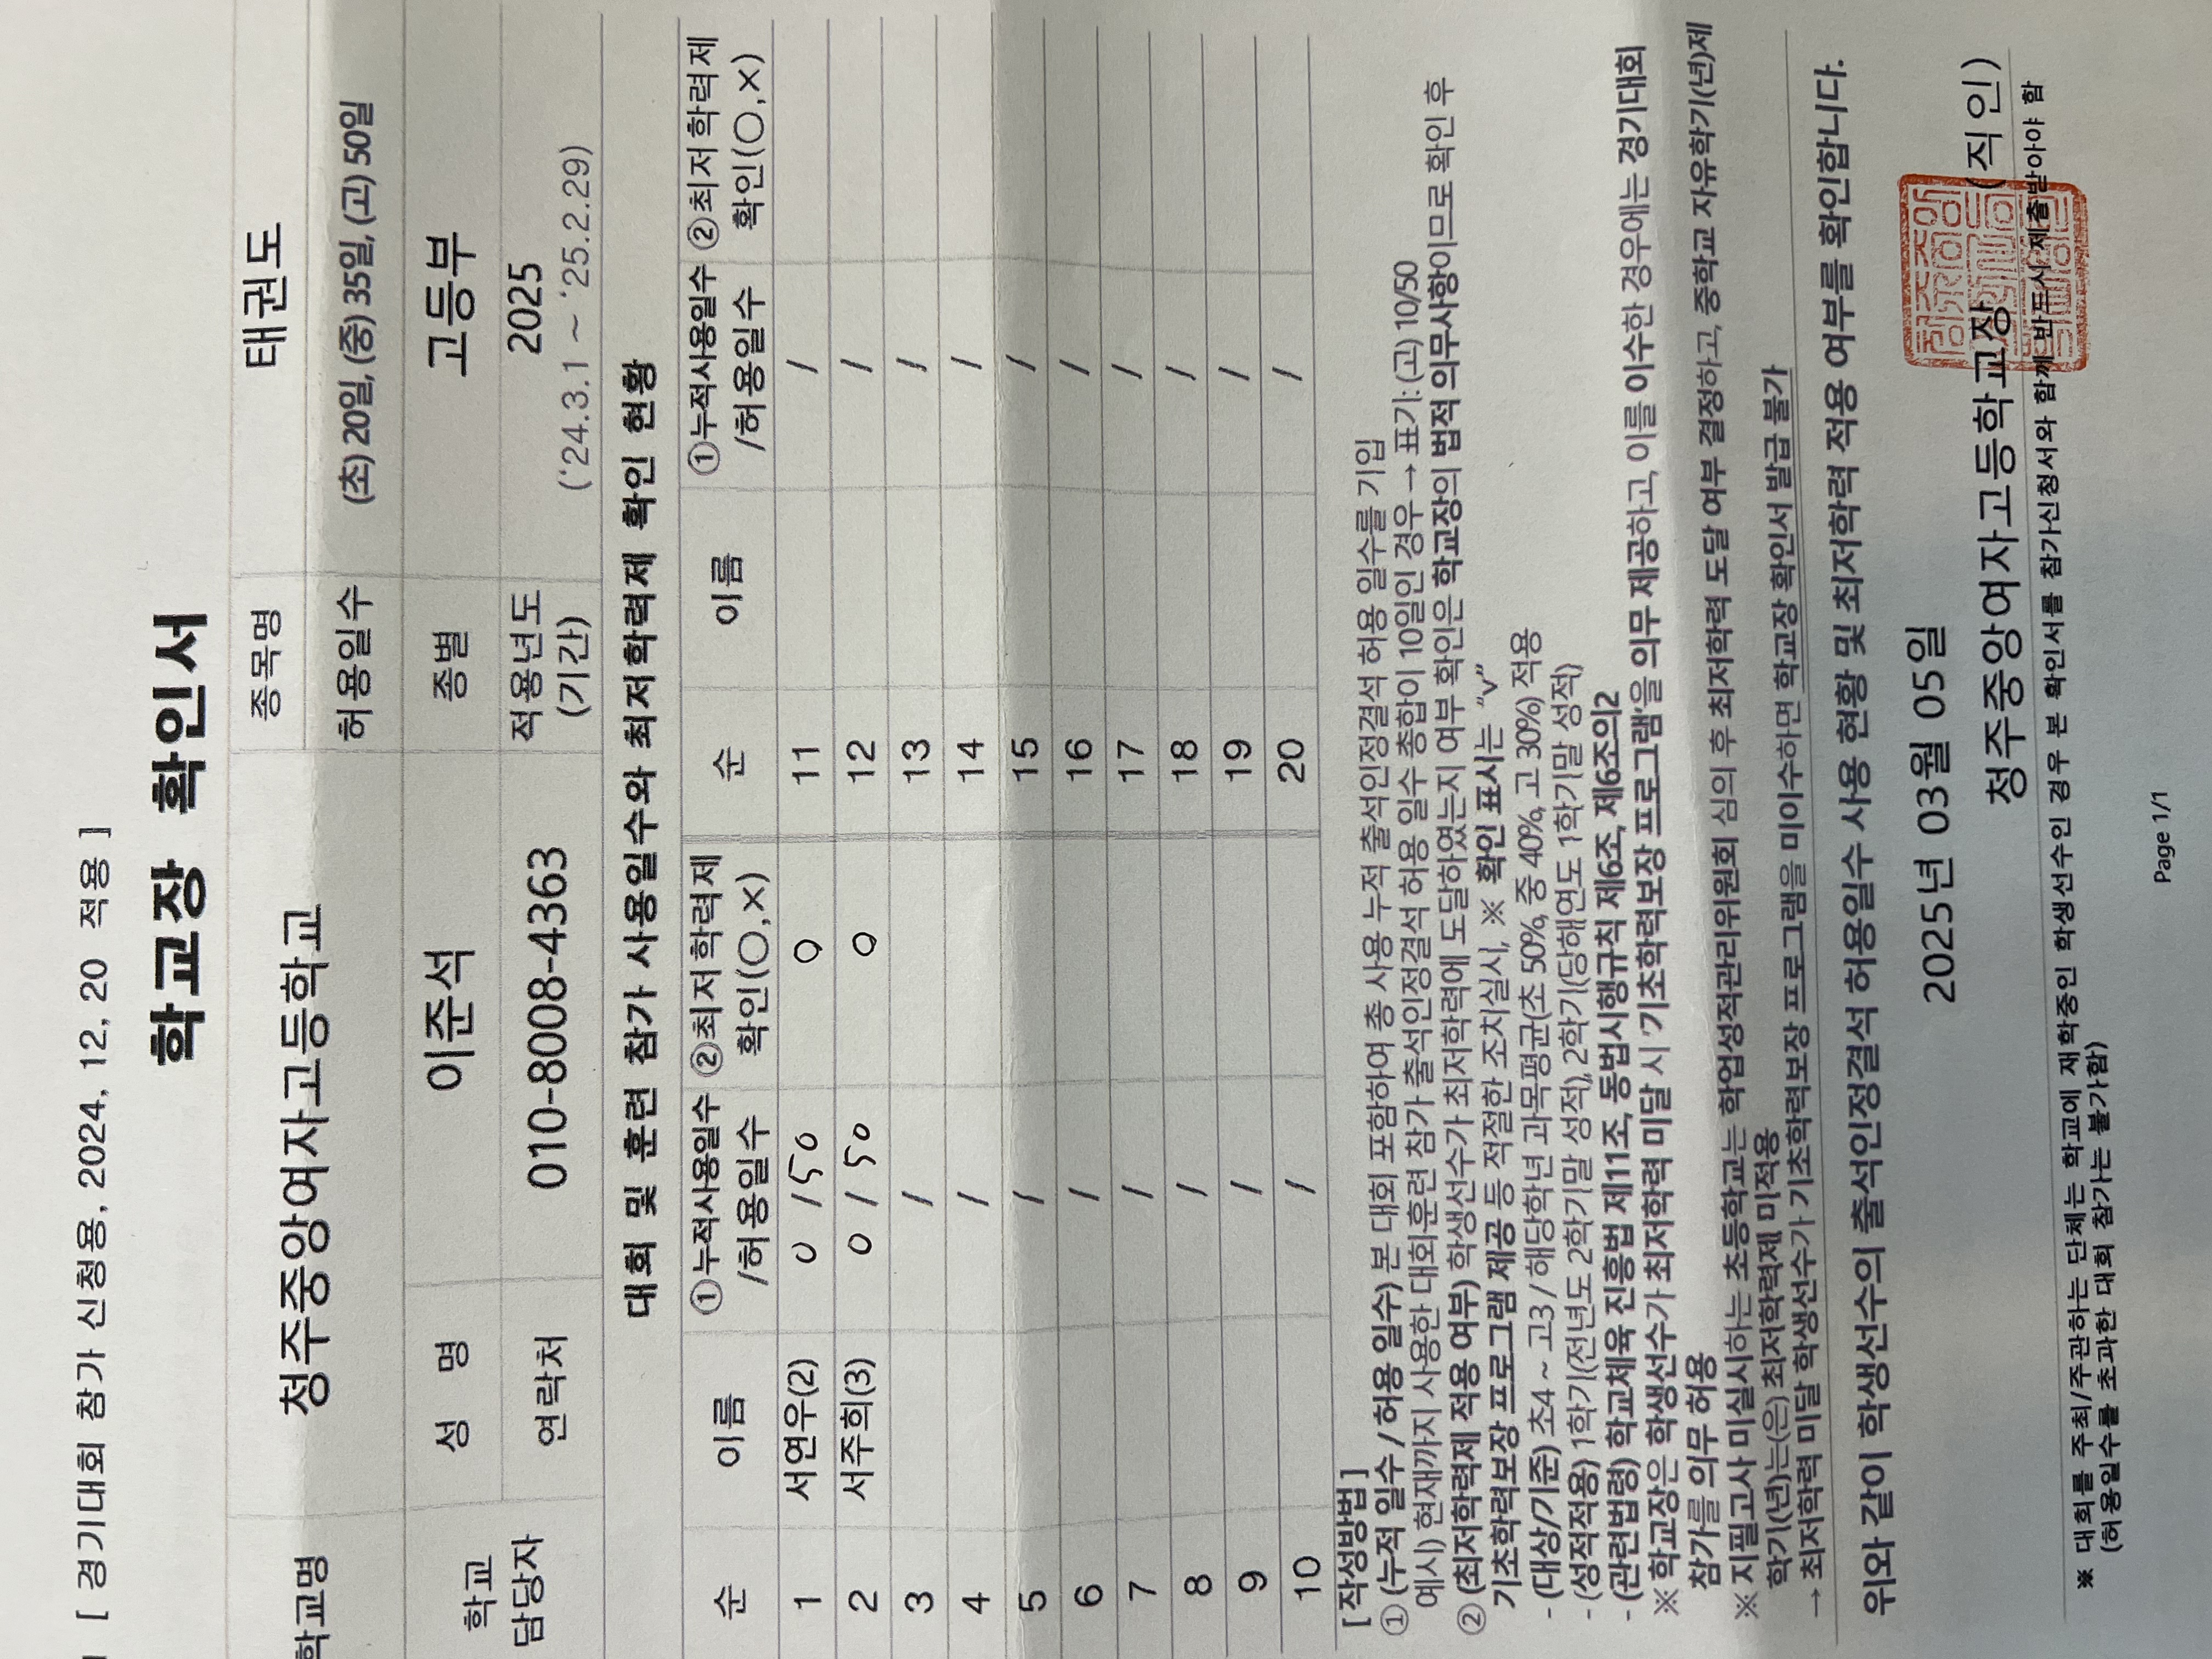 [ 경기대회 참가 신청용, 2024, 12, 20 적용 ]
학교장 확인서
학교명 청주중앙여자고등학교 종목명 태권도
허용일수 (초) 20일, (중) 35일, (고) 50일
학교 담당자 성 명 이준석 종별 고등부
연락처 010-8008-4363 적용년도 (기간) 2025 ('24.3.1 ~ '25.2.29)
대회 및 훈련 참가 사용일수와 최저학력제 확인 현황
순 이름 ①누적사용일수 /허용일수 ②최저학력제 확인(○,×) 순 이름 ①누적사용일수 /허용일수 ②최저학력제 확인(○,×)
1 서연우(2) 0 / 50 ○ 11 /
2 서주희(3) 0 / 50 ○ 12 /
3 / 13 /
4 / 14 /
5 / 15 /
6 / 16 /
7 / 17 /
8 / 18 /
9 / 19 /
10 / 20 /
[ 작성방법 ]
① (누적 일수 / 허용 일수) 본 대회 포함하여 총 사용 누적 출석인정결석 허용 일수를 기입
예시) 현재까지 사용한 대회훈련 참가 출석인정결석 허용 일수 총합이 10일인 경우 → 표기: (고) 10/50
② (최저학력제 적용 여부) 학생선수가 최저학력에 도달하였는지 여부 확인은 학교장의 법적 의무사항이므로 확인 후
기초학력보장 프로그램 제공 등 적절한 조치실시, ※ 확인 표시는 "v"
- (대상/기준) 초4 ~ 고3 / 해당학년 과목평균(초 50%, 중 40%, 고 30%) 적용
- (성적적용) 1학기(전년도 2학기말 성적), 2학기(당해연도 1학기말 성적)
- (관련법령) 학교체육 진흥법 제11조, 동법시행규칙 제6조, 제6조의2
※ 학교장은 학생선수가 최저학력 미달 시 '기초학력보장 프로그램'을 의무 제공하고, 이를 이수한 경우에는 경기대회
참가를 의무 허용
※ 지필고사 미실시하는 초등학교는 학업성적관리위원회 심의 후 최저학력 도달 여부 결정하고, 중학교 자유학기(년)제
학기(년)는(은) 최저학력제 미적용
→ 최저학력 미달 학생선수가 기초학력보장 프로그램을 미이수하면 학교장 확인서 발급 불가
위와 같이 학생선수의 출석인정결석 허용일수 사용 현황 및 최저학력 적용 여부를 확인합니다.
2025년 03월 05일
청주중앙여자고등학교장 (직인)
※ 대회를 주최/주관하는 단체는 학교에 재학중인 학생선수인 경우 본 확인서를 참가신청서와 함께 반드시 제출받아야 함
(허용일수를 초과한 대회 참가는 불가함)
Page 1/1